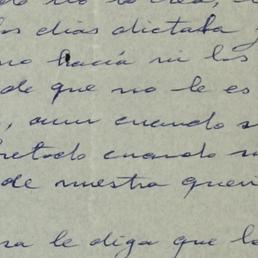 los dias dictaba
no hacía ni los
de que no le es
, aun cuando s
cuando
de nuestra quer
ra le diga que la